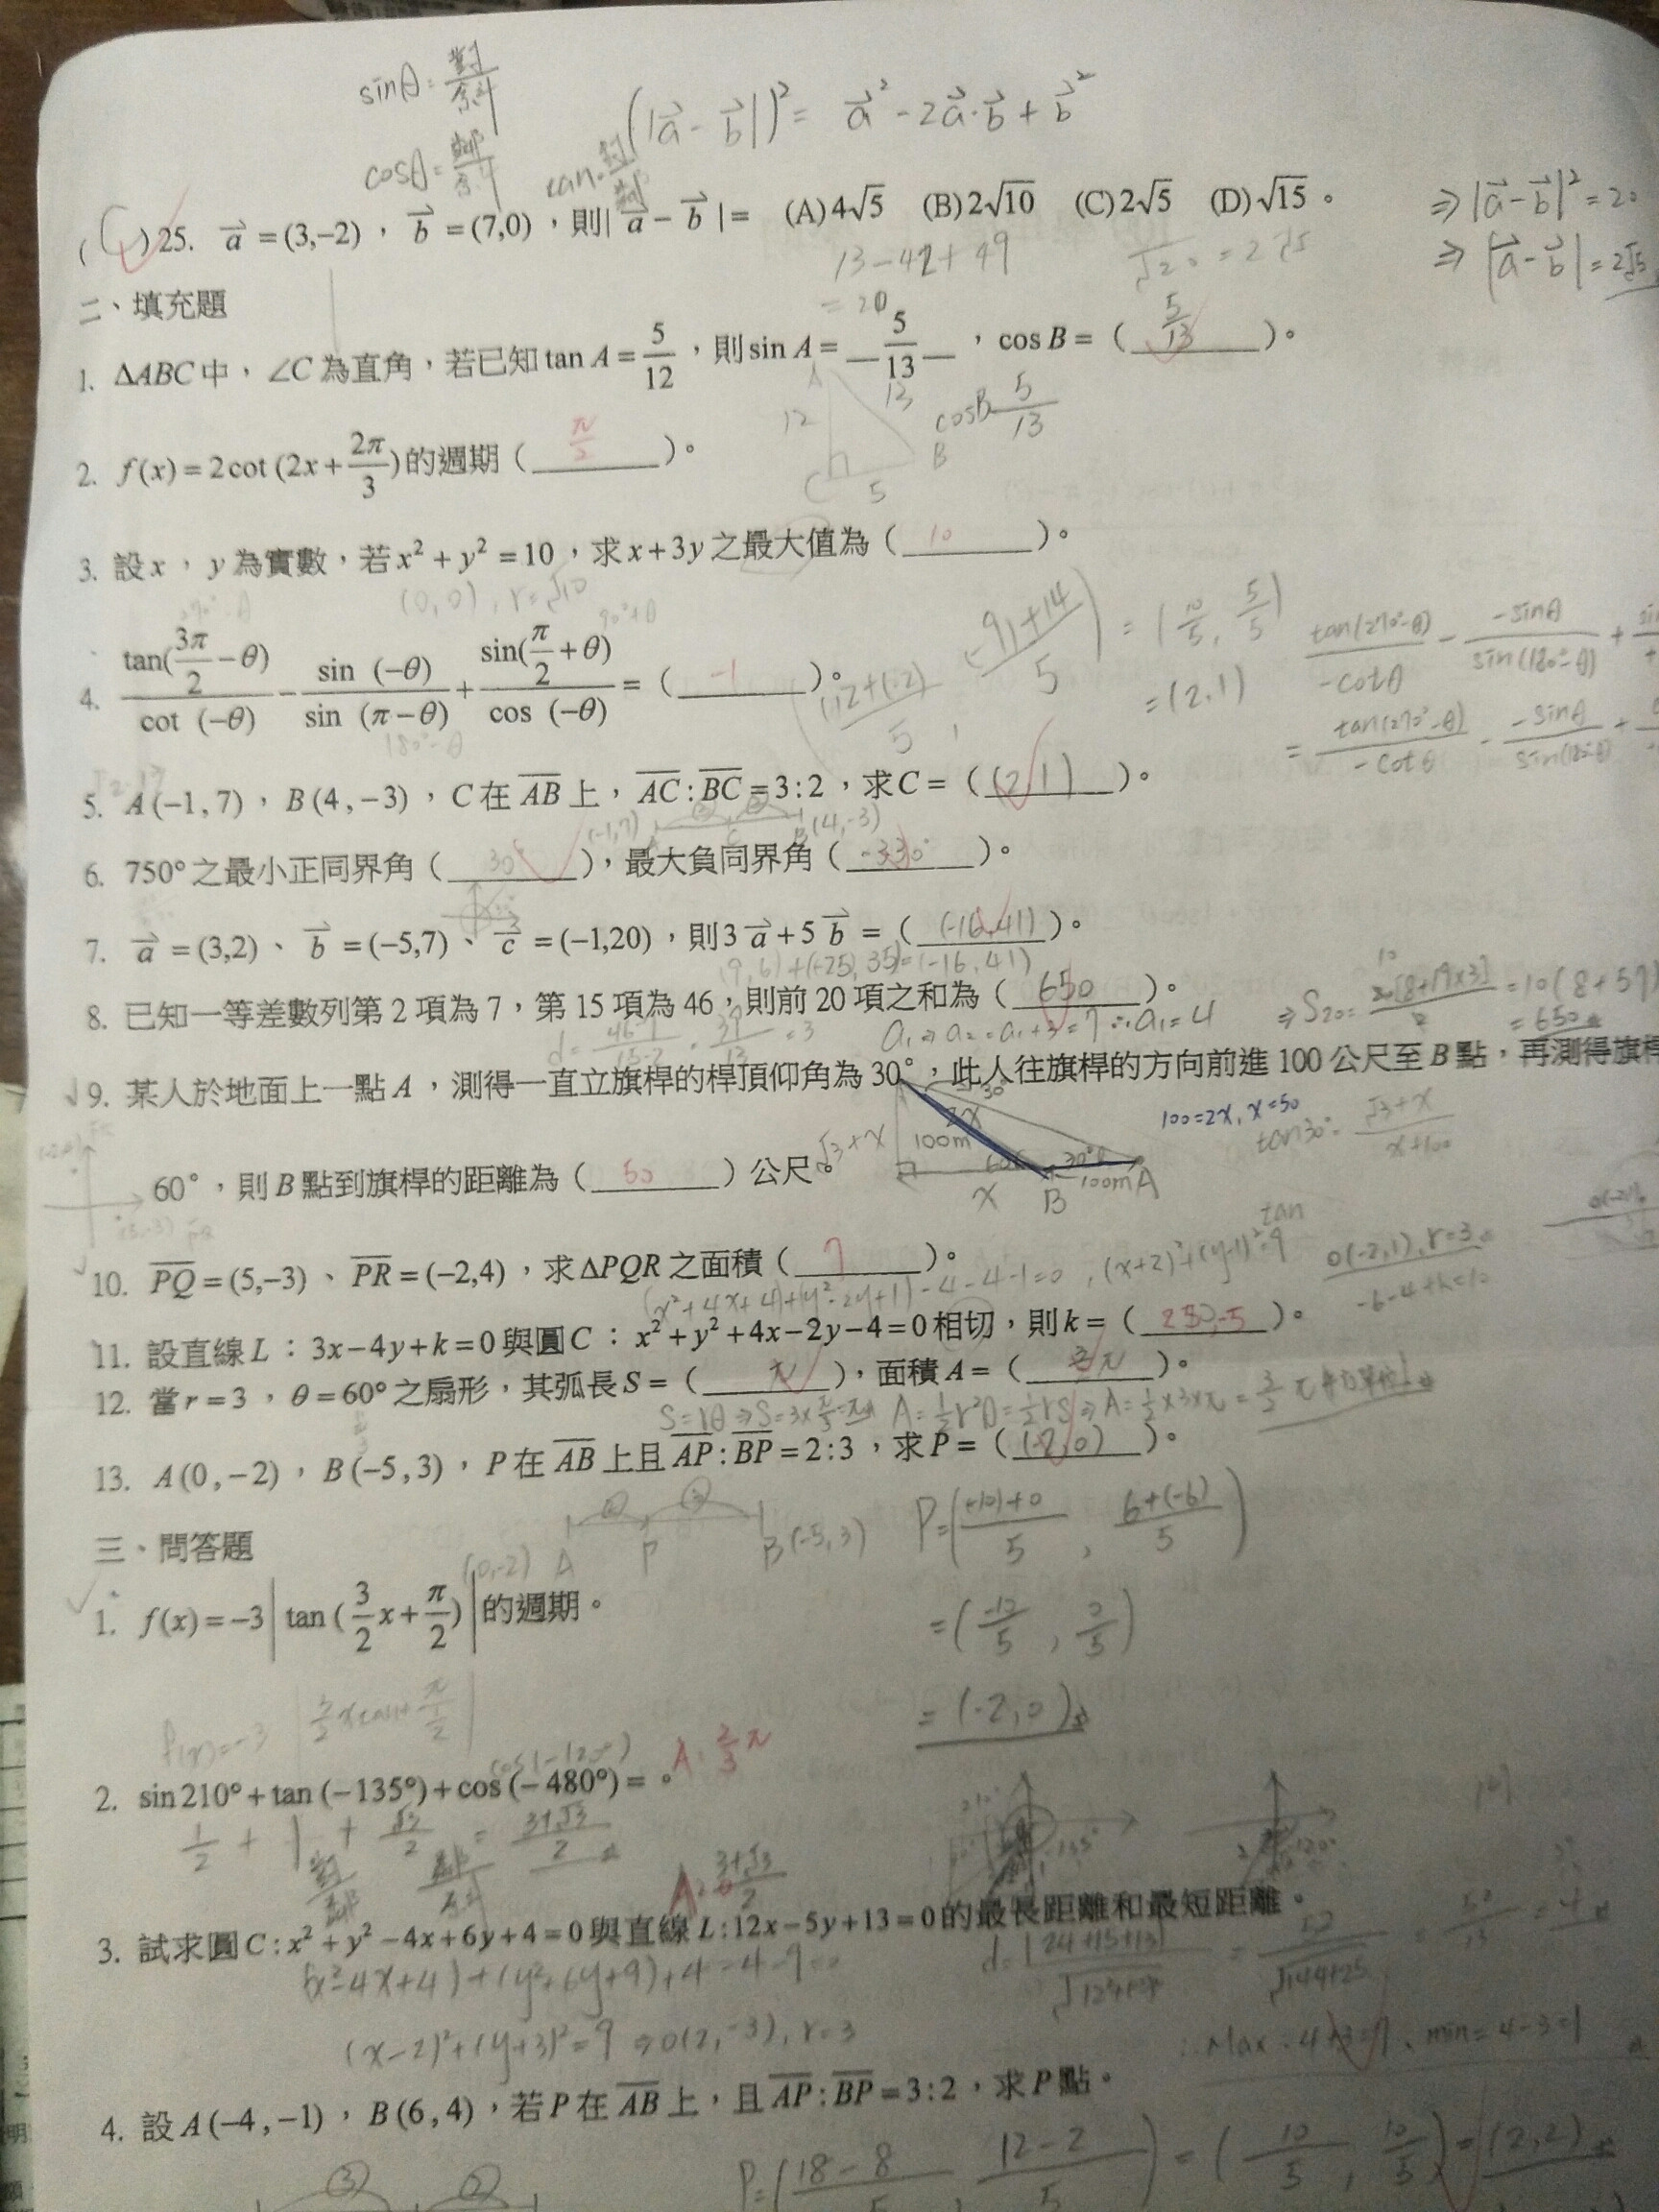 sinθ=對/斜
(|a⃗-b⃗|)²= a⃗²-2a⃗·b⃗+b⃗²
cosθ=鄰/斜 tan=對/鄰
(C)25. a⃗=(3,-2),b⃗=(7,0),則|a⃗-b⃗|= (A)4√5 (B)2√10 (C)2√5 (D)√15。
⇒|a⃗-b⃗|²=20
⇒|a⃗-b⃗|=2√5
13-42+49
=20
√20=2√5
二、填充題
1. ΔABC中,∠C為直角,若已知tan A=5/12,則sin A=__5/13__,cos B=(5/13)。
A 12 13 C 5 B
cosB=5/13
2. f(x)=2cot(2x+2π/3)的週期(π/2)。
3. 設x,y為實數,若x²+y²=10,求x+3y之最大值為(10)。
(0,0),r=√10
270°-θ 90°+θ
4. tan(3π/2-θ)/cot(-θ)-sin(-θ)/sin(π-θ)+sin(π/2+θ)/cos(-θ)=(-1)。
180°-θ
(12+(-2)/5, -9+14/5)=(10/5, 5/5)
=(2,1)
tan(270°-θ)/-cotθ - -sinθ/sin(180°-θ) +
= tan(270°-θ)/-cotθ - -sinθ/sin(180°-θ) +
5. A(-1,7),B(4,-3),C在AB上,AC:BC=3:2,求C=((2,1))。
(-1,7) A C B(4,-3)
6. 750°之最小正同界角(30°),最大負同界角(-330°)。
7. a⃗=(3,2)、b⃗=(-5,7)、c⃗=(-1,20),則3a⃗+5b⃗=((-16,41))。
(9,6)+(-25,35)=(-16,41)
8. 已知一等差數列第2項為7,第15項為46,則前20項之和為(650)。
d=46-7/15-2=39/13=3 a₁⇒a₂=a₁+3=7∴a₁=4
⇒S₂₀=20[8+19×3]/2=10(8+57)
=650
9. 某人於地面上一點A,測得一直立旗桿的桿頂仰角為30°,此人往旗桿的方向前進100公尺至B點,再測得旗桿
30° 2x 100m √3+x 60° 30° x B 100m A
100=2x, x=50
tan30°=√3+x/x+100
60°,則B點到旗桿的距離為(50)公尺。
10. PQ=(5,-3)、PR=(-2,4),求ΔPQR之面積(7)。
(x²+4x+4)+(y²-2y+1)-4-4-1=0,(x+2)²+(y-1)²=9
O(-2,1),r=3
-6-4+k=
11. 設直線L:3x-4y+k=0與圓C:x²+y²+4x-2y-4=0相切,則k=(25,-5)。
12. 當r=3,θ=60°之扇形,其弧長S=(π),面積A=(3/2π)。
S=rθ⇒S=3×π/3=π A=1/2r²θ=1/2rS⇒A=1/2×3×π=3/2π平方單位
13. A(0,-2),B(-5,3),P在AB上且AP:BP=2:3,求P=((-2,0))。
(0,-2) A P B(-5,3)
P=((-10)+0/5, 6+(-6)/5)
=(-10/5, 0/5)
=(-2,0)
三、問答題
1. f(x)=-3|tan(3/2x+π/2)|的週期。
f(x)=-3
A:2/3π
2. sin210°+tan(-135°)+cos(-480°)=。
1/2+1+√3/2=3+√3/2
對/鄰 鄰/斜
A:3+√3/2
3. 試求圓C:x²+y²-4x+6y+4=0與直線L:12x-5y+13=0的最長距離和最短距離。
(x²-4x+4)+(y²+6y+9)+4-4-9=0
d=|24+15+13|/√12²+5²=52/√144+25=52/13=4
(x-2)²+(y+3)²=9⇒O(2,-3),r=3
∴Max=4+3=7、min=4-3=1
4. 設A(-4,-1),B(6,4),若P在AB上,且AP:BP=3:2,求P點。
P=(18-8/5, 12-2/5)=(10/5, 10/5)=(2,2)
③ ②